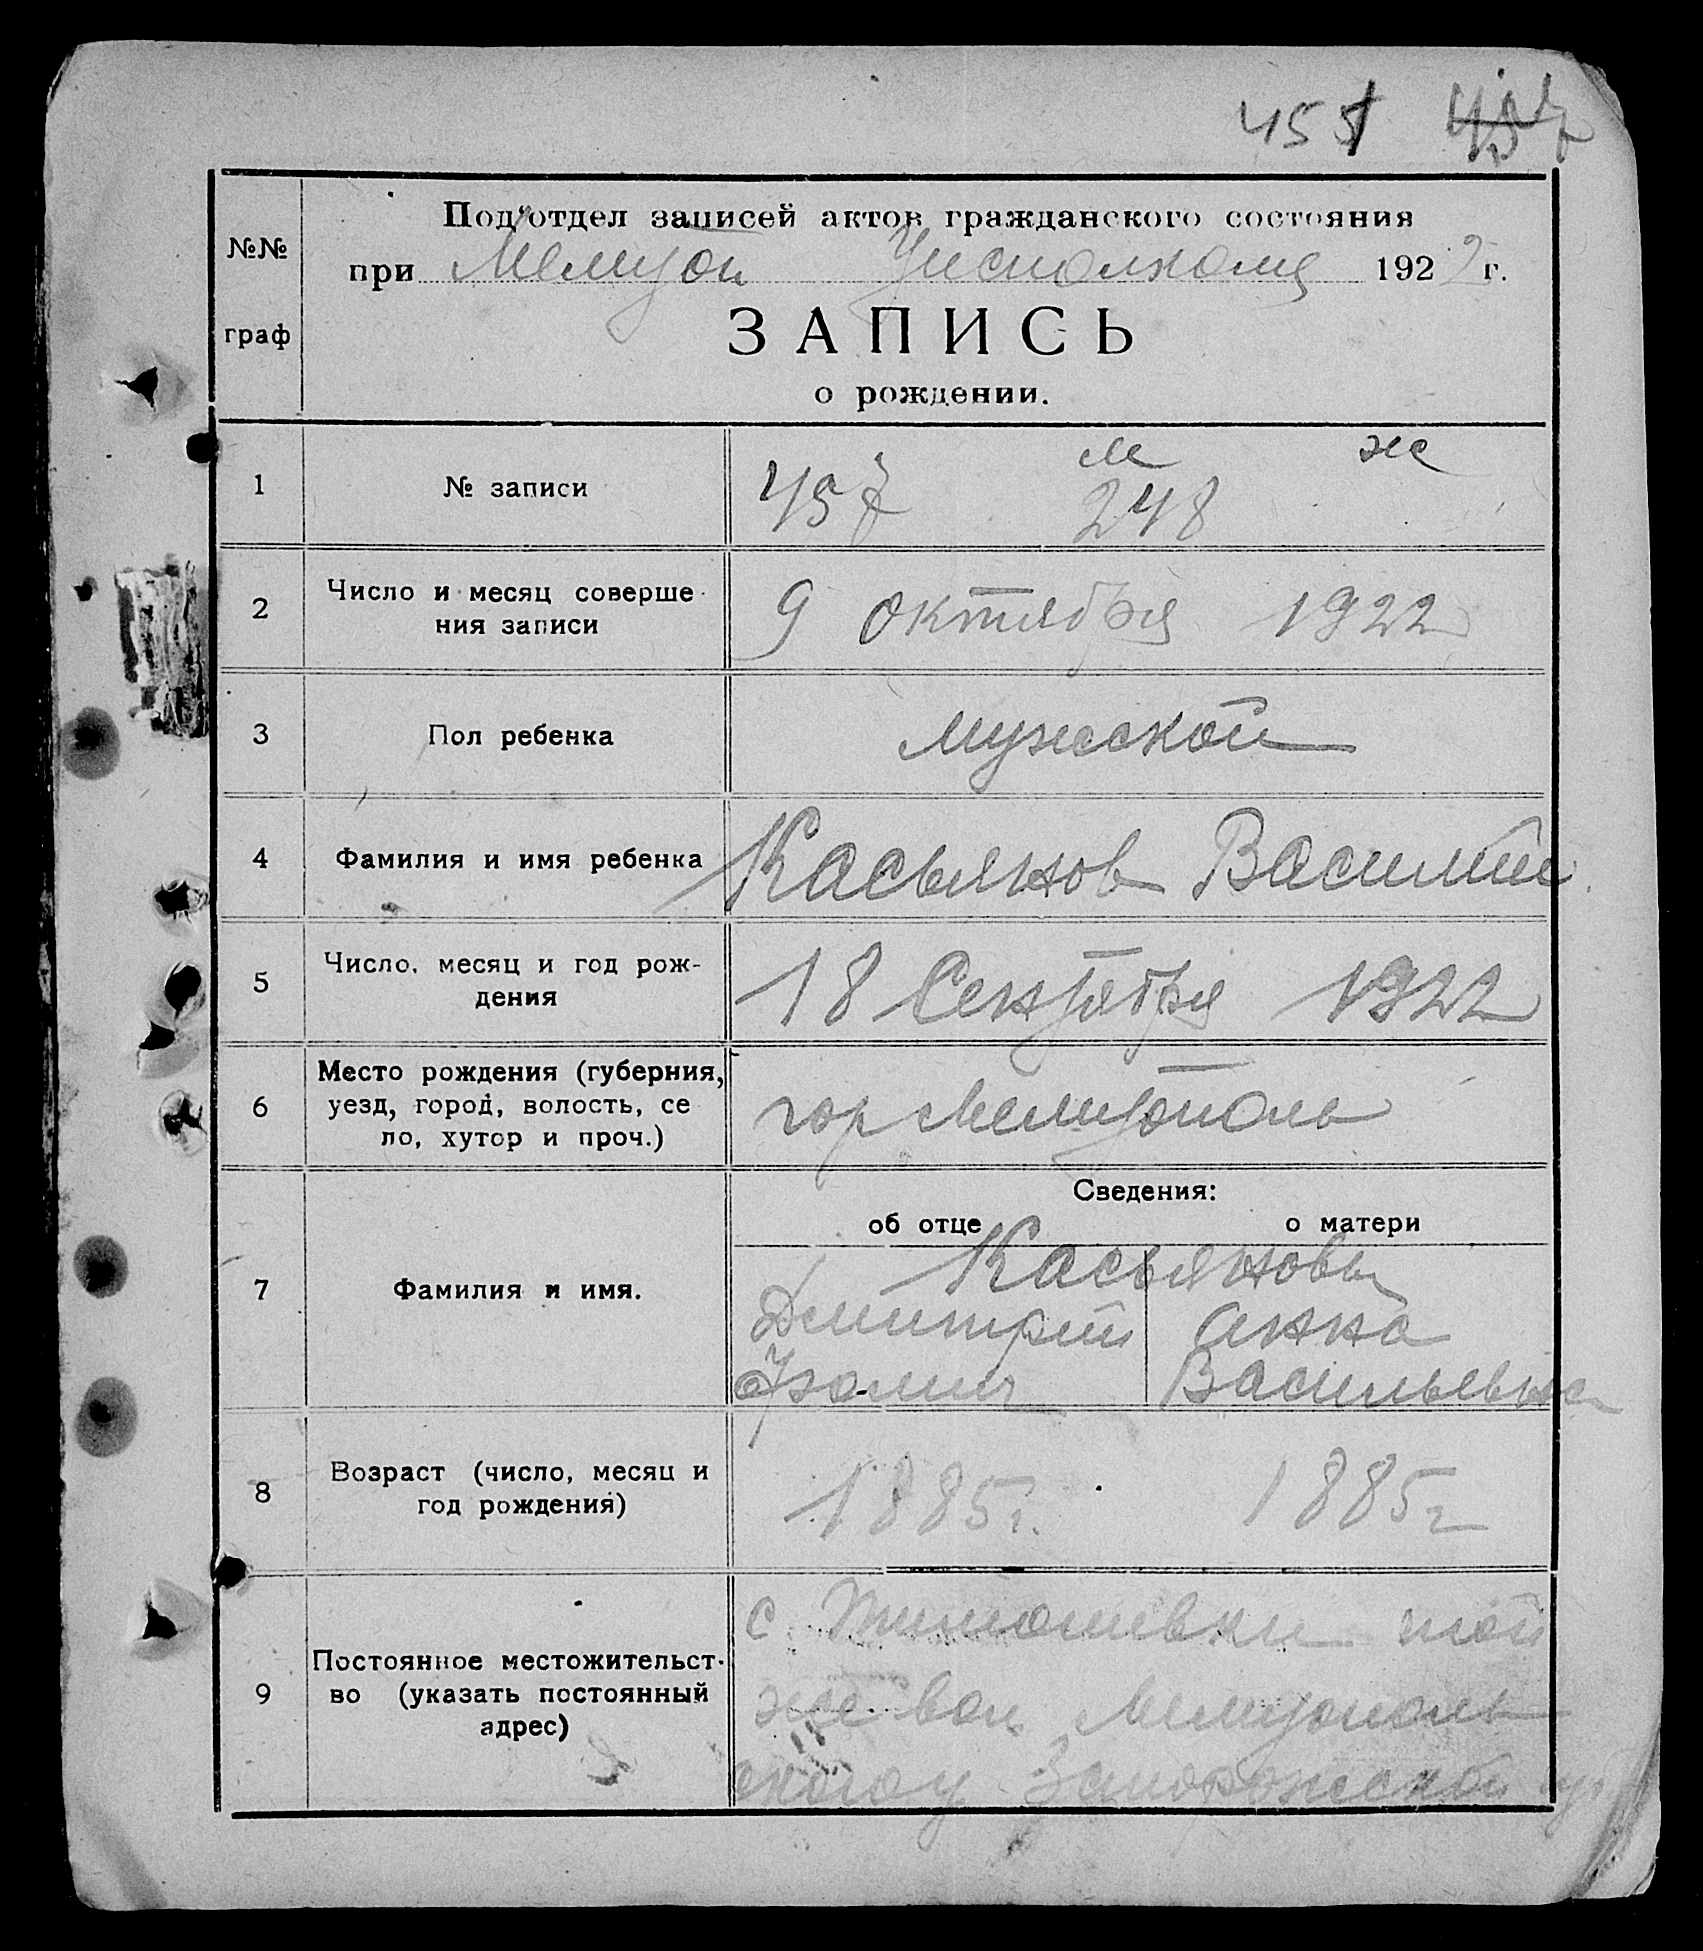 455
Подотдел записей актов гражданского состояния
№№
при Мелитоп Уисполкоме 1922 г.
граф
ЗАПИСЬ
о рождении.
м ж
1 № записи 457 248
2 Число и месяц соверше- 9 октября 1922
ния записи
3 Пол ребенка мужской
4 Фамилия и имя ребенка Касьянов Василий
5 Число, месяц и год рож- 18 Сентября 1922
дения
Место рождения (губерния,
6 уезд, город, волость, се гор Мелитополь
ло, хутор и проч.)
Сведения:
об отце о матери
Касьяновы
7 Фамилия и имя. Дмитрий Анна
Васильевна
8 Возраст (число, месяц и 1885г. 1885г
год рождения)
с Тимошевки той
9 Постоянное местожительст-
во (указать постоянный же вол Мелитополь
адрес)
ского у Запорожской гу